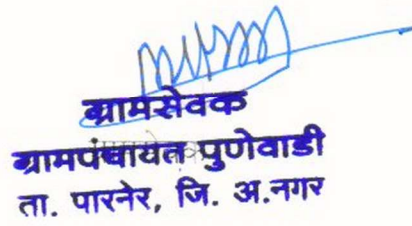 ग्रामसेवक
ग्रामपंचायत पुणेवाडी
ता. पारनेर, जि. अ.नगर